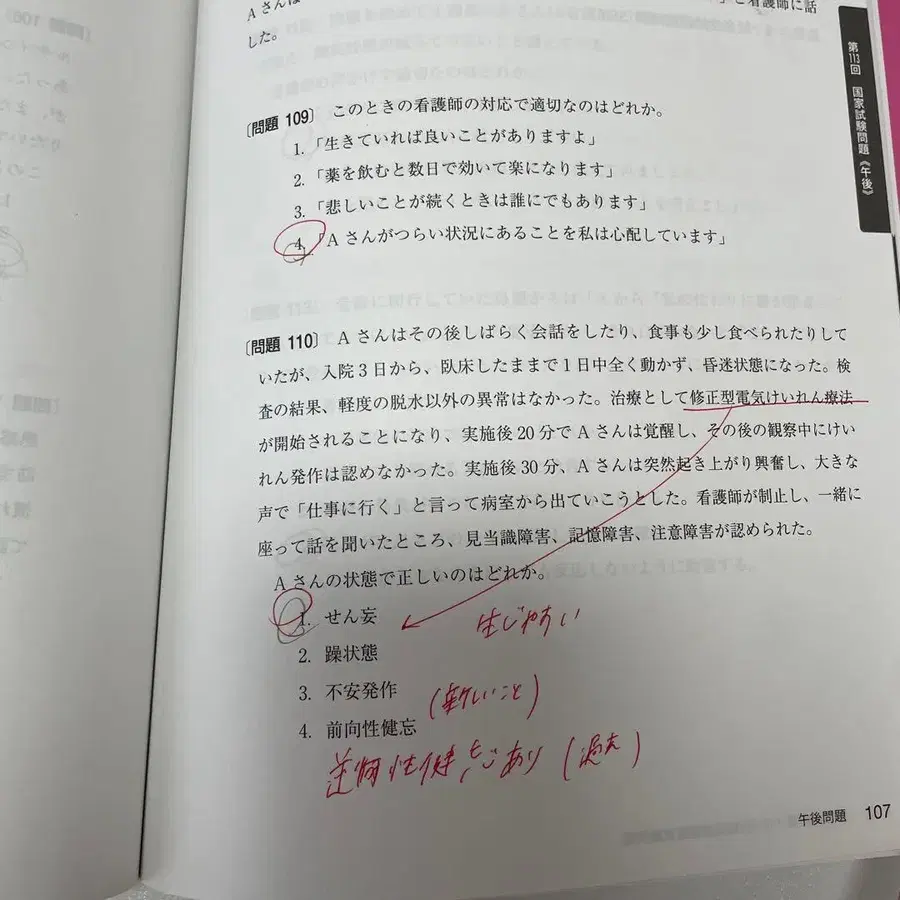 Aさんは
と看護師に話
した。
〔問題 109〕 このときの看護師の対応で適切なのはどれか。
1.「生きていれば良いことがありますよ」
2.「薬を飲むと数日で効いて楽になります」
3.「悲しいことが続くときは誰にでもあります」
4.「Aさんがつらい状況にあることを私は心配しています」
〔問題 110〕 Aさんはその後しばらく会話をしたり、食事も少し食べられたりして
いたが、入院3日から、臥床したままで1日中全く動かず、昏迷状態になった。検
査の結果、軽度の脱水以外の異常はなかった。治療として修正型電気けいれん療法
が開始されることになり、実施後20分でAさんは覚醒し、その後の観察中にけい
れん発作は認めなかった。実施後30分、Aさんは突然起き上がり興奮し、大きな
声で「仕事に行く」と言って病室から出ていこうとした。看護師が制止し、一緒に
座って話を聞いたところ、見当識障害、記憶障害、注意障害が認められた。
Aさんの状態で正しいのはどれか。
1. せん妄
生じやすい
2. 躁状態
3. 不安発作
(新しいこと)
4. 前向性健忘
逆向性健忘あり (過去)
午後問題 107
第113回 国家試験問題《午後》